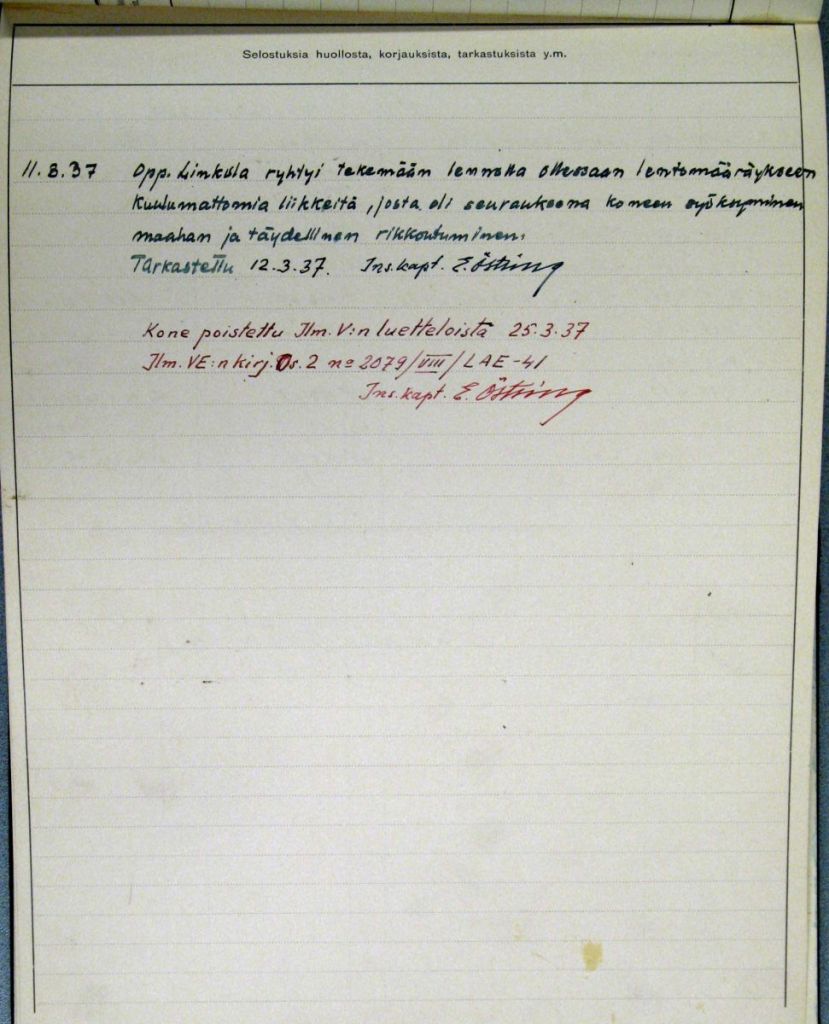 Selostuksia huollosta, korjauksista, tarkastuksista y.m.
11.3.37 Opp. Linkola ryhtyi tekemään lennolla ollessaan lentomääräykseen
kuulumattomia liikkeitä, josta oli seurauksena koneen syöksyminen
maahan ja täydellinen rikkoutuminen.
Tarkastettu 12.3.37. Ins.kapt. E. Östring
Kone poistettu Ilm. V:n luetteloista 25.3.37
Ilm. VE:n kirj. Os. 2 no 2079/VIII/LAE-41
Ins.kapt. E. Östring